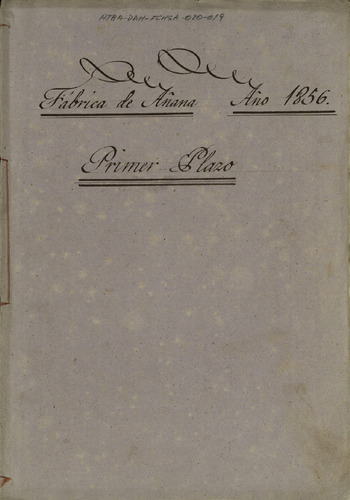 ATHA-DAH-FCHSA-010-019
Fábrica de Añana Año 1856.
Primer Plazo